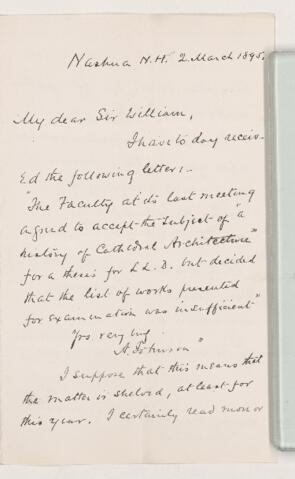 Nashua N.H. 2. March 1895.
My dear Sir William,
I have to day receiv-
Ed the following letter:-
"The Faculty at its last meeting
agreed to accept the subject of "a
history of Cathedral Architecture"
for a thesis for LL.D. but decided
that the list of works presented
for examination was insufficient"
Yrs. very
A. Johnson"
I suppose that this means that
the matter is shelved, at least for
this year. I certainly read more or